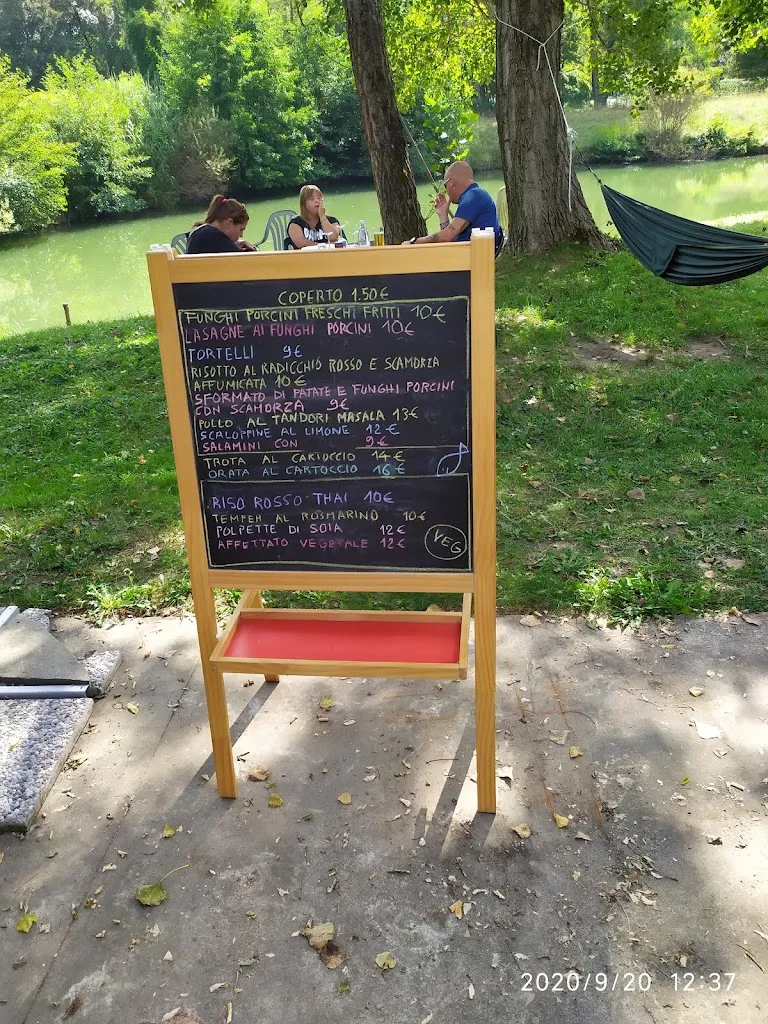 COPERTO 1.50€
FUNGHI PORCINI FRESCHI FRITTI 10€
LASAGNE AI FUNGHI PORCINI 10€
TORTELLI 9€
RISOTTO AL RADICCHIO ROSSO E SCAMORZA
AFFUMICATA 10€
SFORMATO DI PATATE E FUNGHI PORCINI
CON SCAMORZA 9€
POLLO AL TANDORI MASALA 13€
SCALOPPINE AL LIMONE 12€
SALAMINI CON 9€
TROTA AL CARTOCCIO 14€
ORATA AL CARTOCCIO 16€
RISO ROSSO THAI 10€
TEMPEH AL ROSMARINO 10€
POLPETTE DI SOIA 12€
AFFETTATO VEGETALE 12€
VEG
2020/9/20 12:37